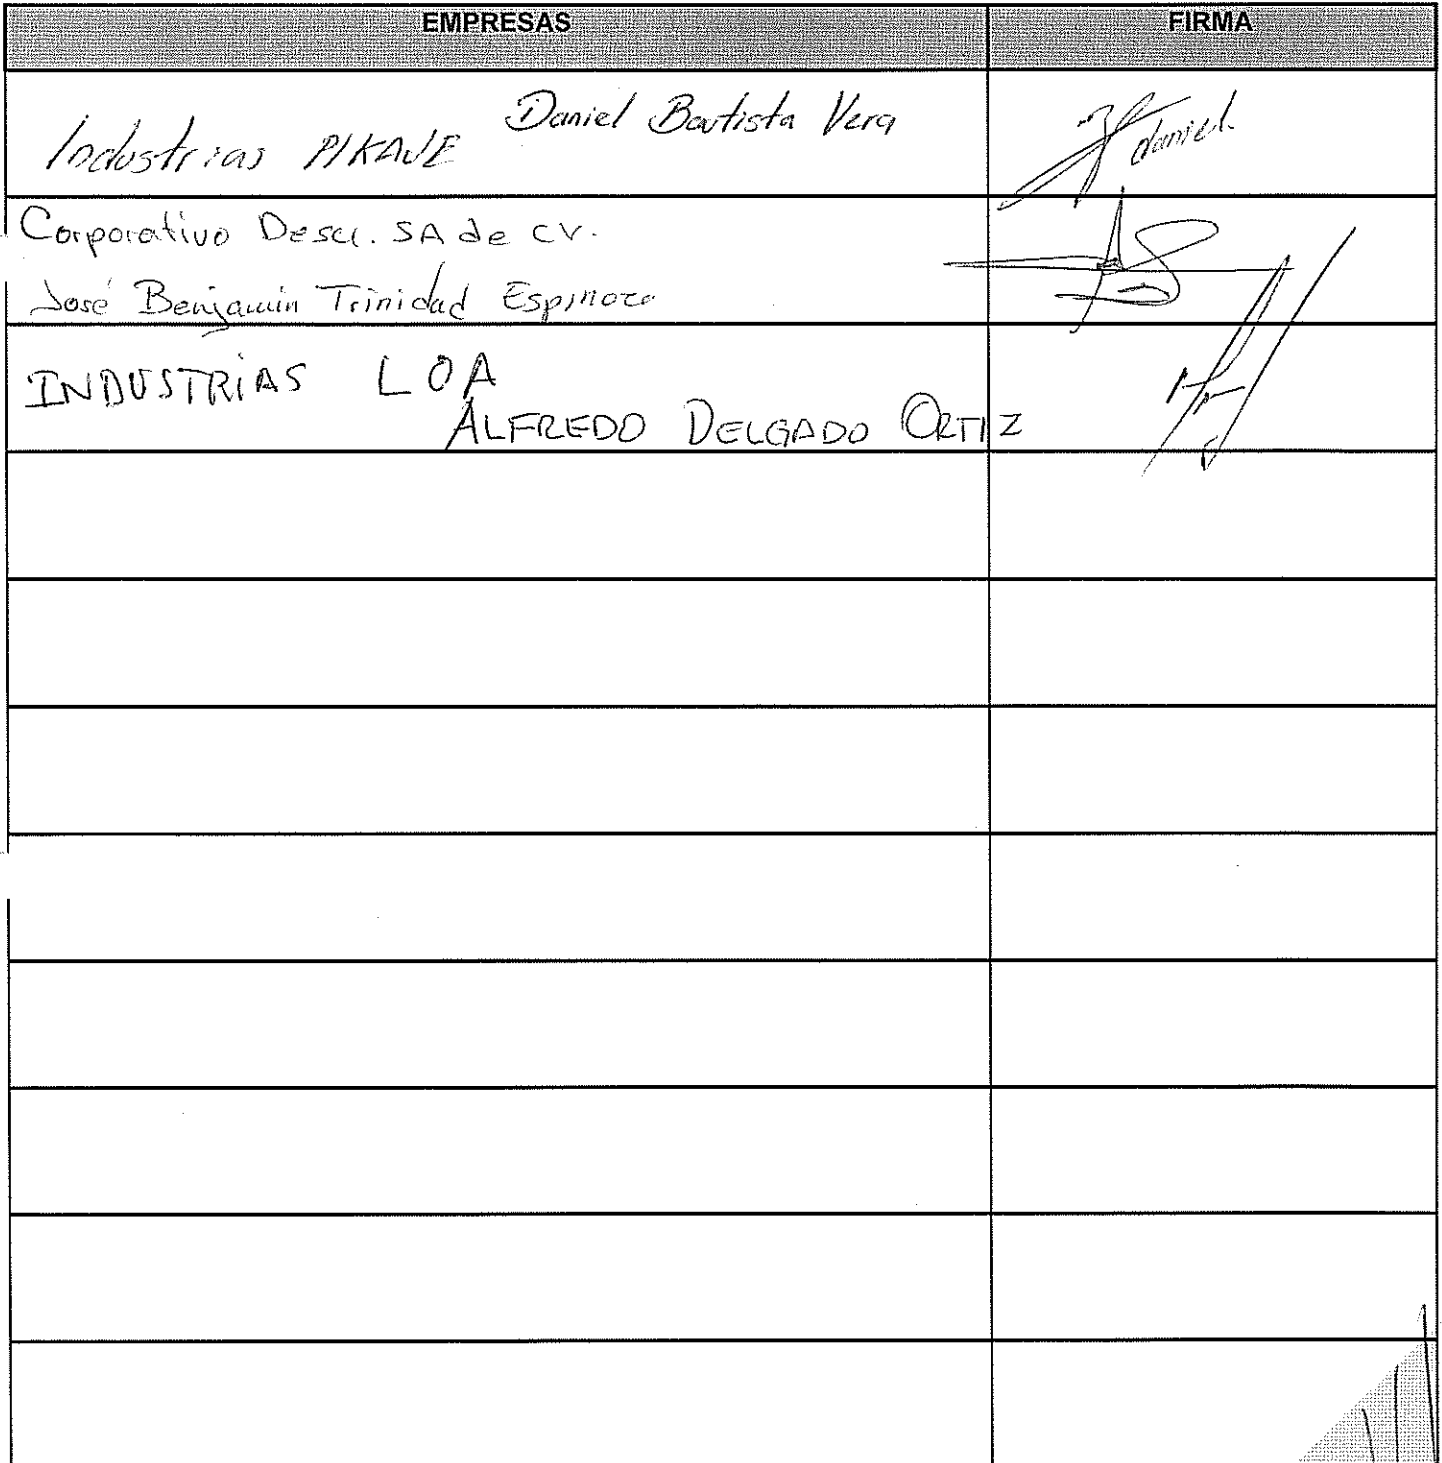 EMPRESAS FIRMA
Industrias PIKAJE Daniel Bautista Vera daniel.
Corporativo Desci. SA de CV.
José Benjamin Trinidad Espinoza
INDUSTRIAS LOA
ALFREDO DELGADO ORTIZ